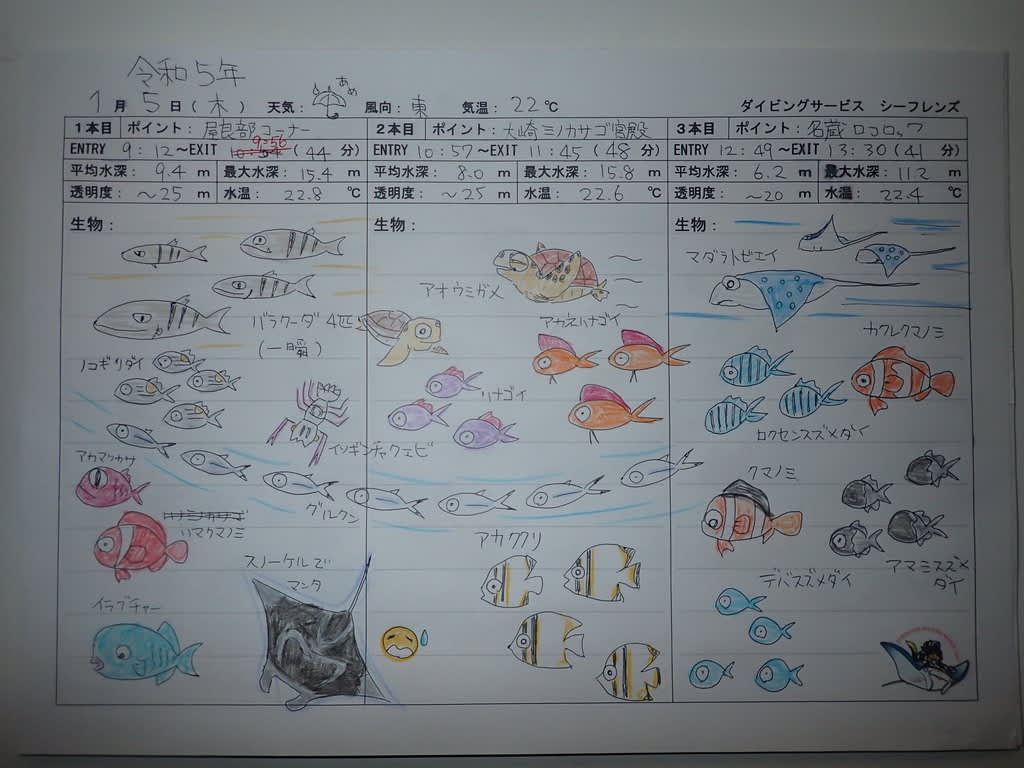 令和5年
1月 5日(木) 天気: あめ 風向: 東 気温: 22℃ ダイビングサービス シーフレンズ
1本目 ポイント: 屋良部コーナー
ENTRY 9:12~EXIT 9:56 (44分)
平均水深: 9.4 m 最大水深: 15.4 m
透明度: ~25 m 水温: 22.8 ℃
2本目 ポイント: 大崎ミノカサゴ宮殿
ENTRY 10:57~EXIT 11:45 (48分)
平均水深: 8.0 m 最大水深: 15.8 m
透明度: ~25 m 水温: 22.6 ℃
3本目 ポイント: 名蔵ロコロック
ENTRY 12:49~EXIT 13:30 (41分)
平均水深: 6.2 m 最大水深: 11.2 m
透明度: ~20 m 水温: 22.4 ℃
生物:
バラクーダ 4匹
(一瞬)
ノコギリダイ
イソギンチャクエビ
アカマツカサ
グルクン
ハマクマノミ
スノーケルで
マンタ
イラブチャー
生物:
アオウミガメ
アカネハナゴイ
ハナゴイ
アカククリ
生物:
マダラトビエイ
カクレクマノミ
ロクセンスズメダイ
クマノミ
アマミスズメ
ダイ
デバスズメダイ